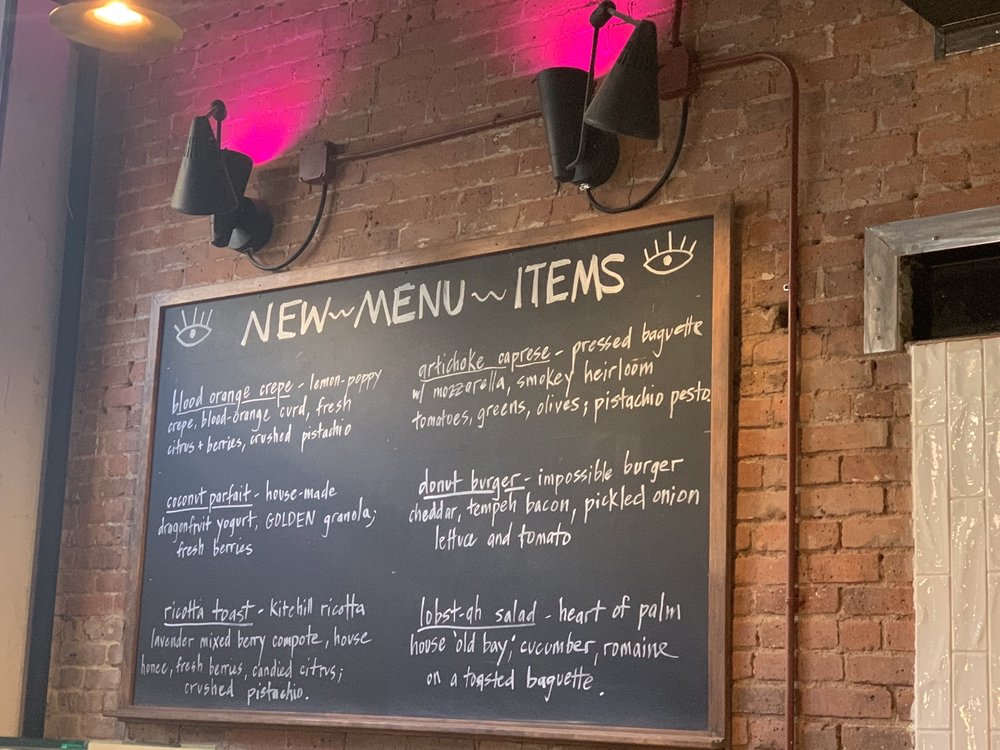 NEW~MENU~ITEMS
blood orange crepe - lemon-poppy
crepe, blood-orange curd, fresh
citrus + berries, crushed pistachio
coconut parfait - house-made
dragonfruit yogurt, GOLDEN granola;
fresh berries
ricotta toast - Kitehill ricotta
lavender mixed berry compote, house
honee, fresh berries, candied citrus;
crushed pistachio.
artichoke caprese - pressed baguette
w/ mozzarella, smokey heirloom
tomatoes, greens, olives; pistachio pesto.
donut burger - impossible burger
cheddar, tempeh bacon, pickled onion
lettuce and tomato
lobst-ah salad - heart of palm
house 'old bay', cucumber, romaine
on a toasted baguette.